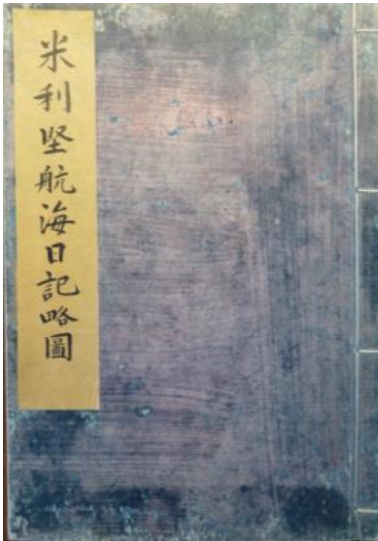 米利堅航海日記略圖